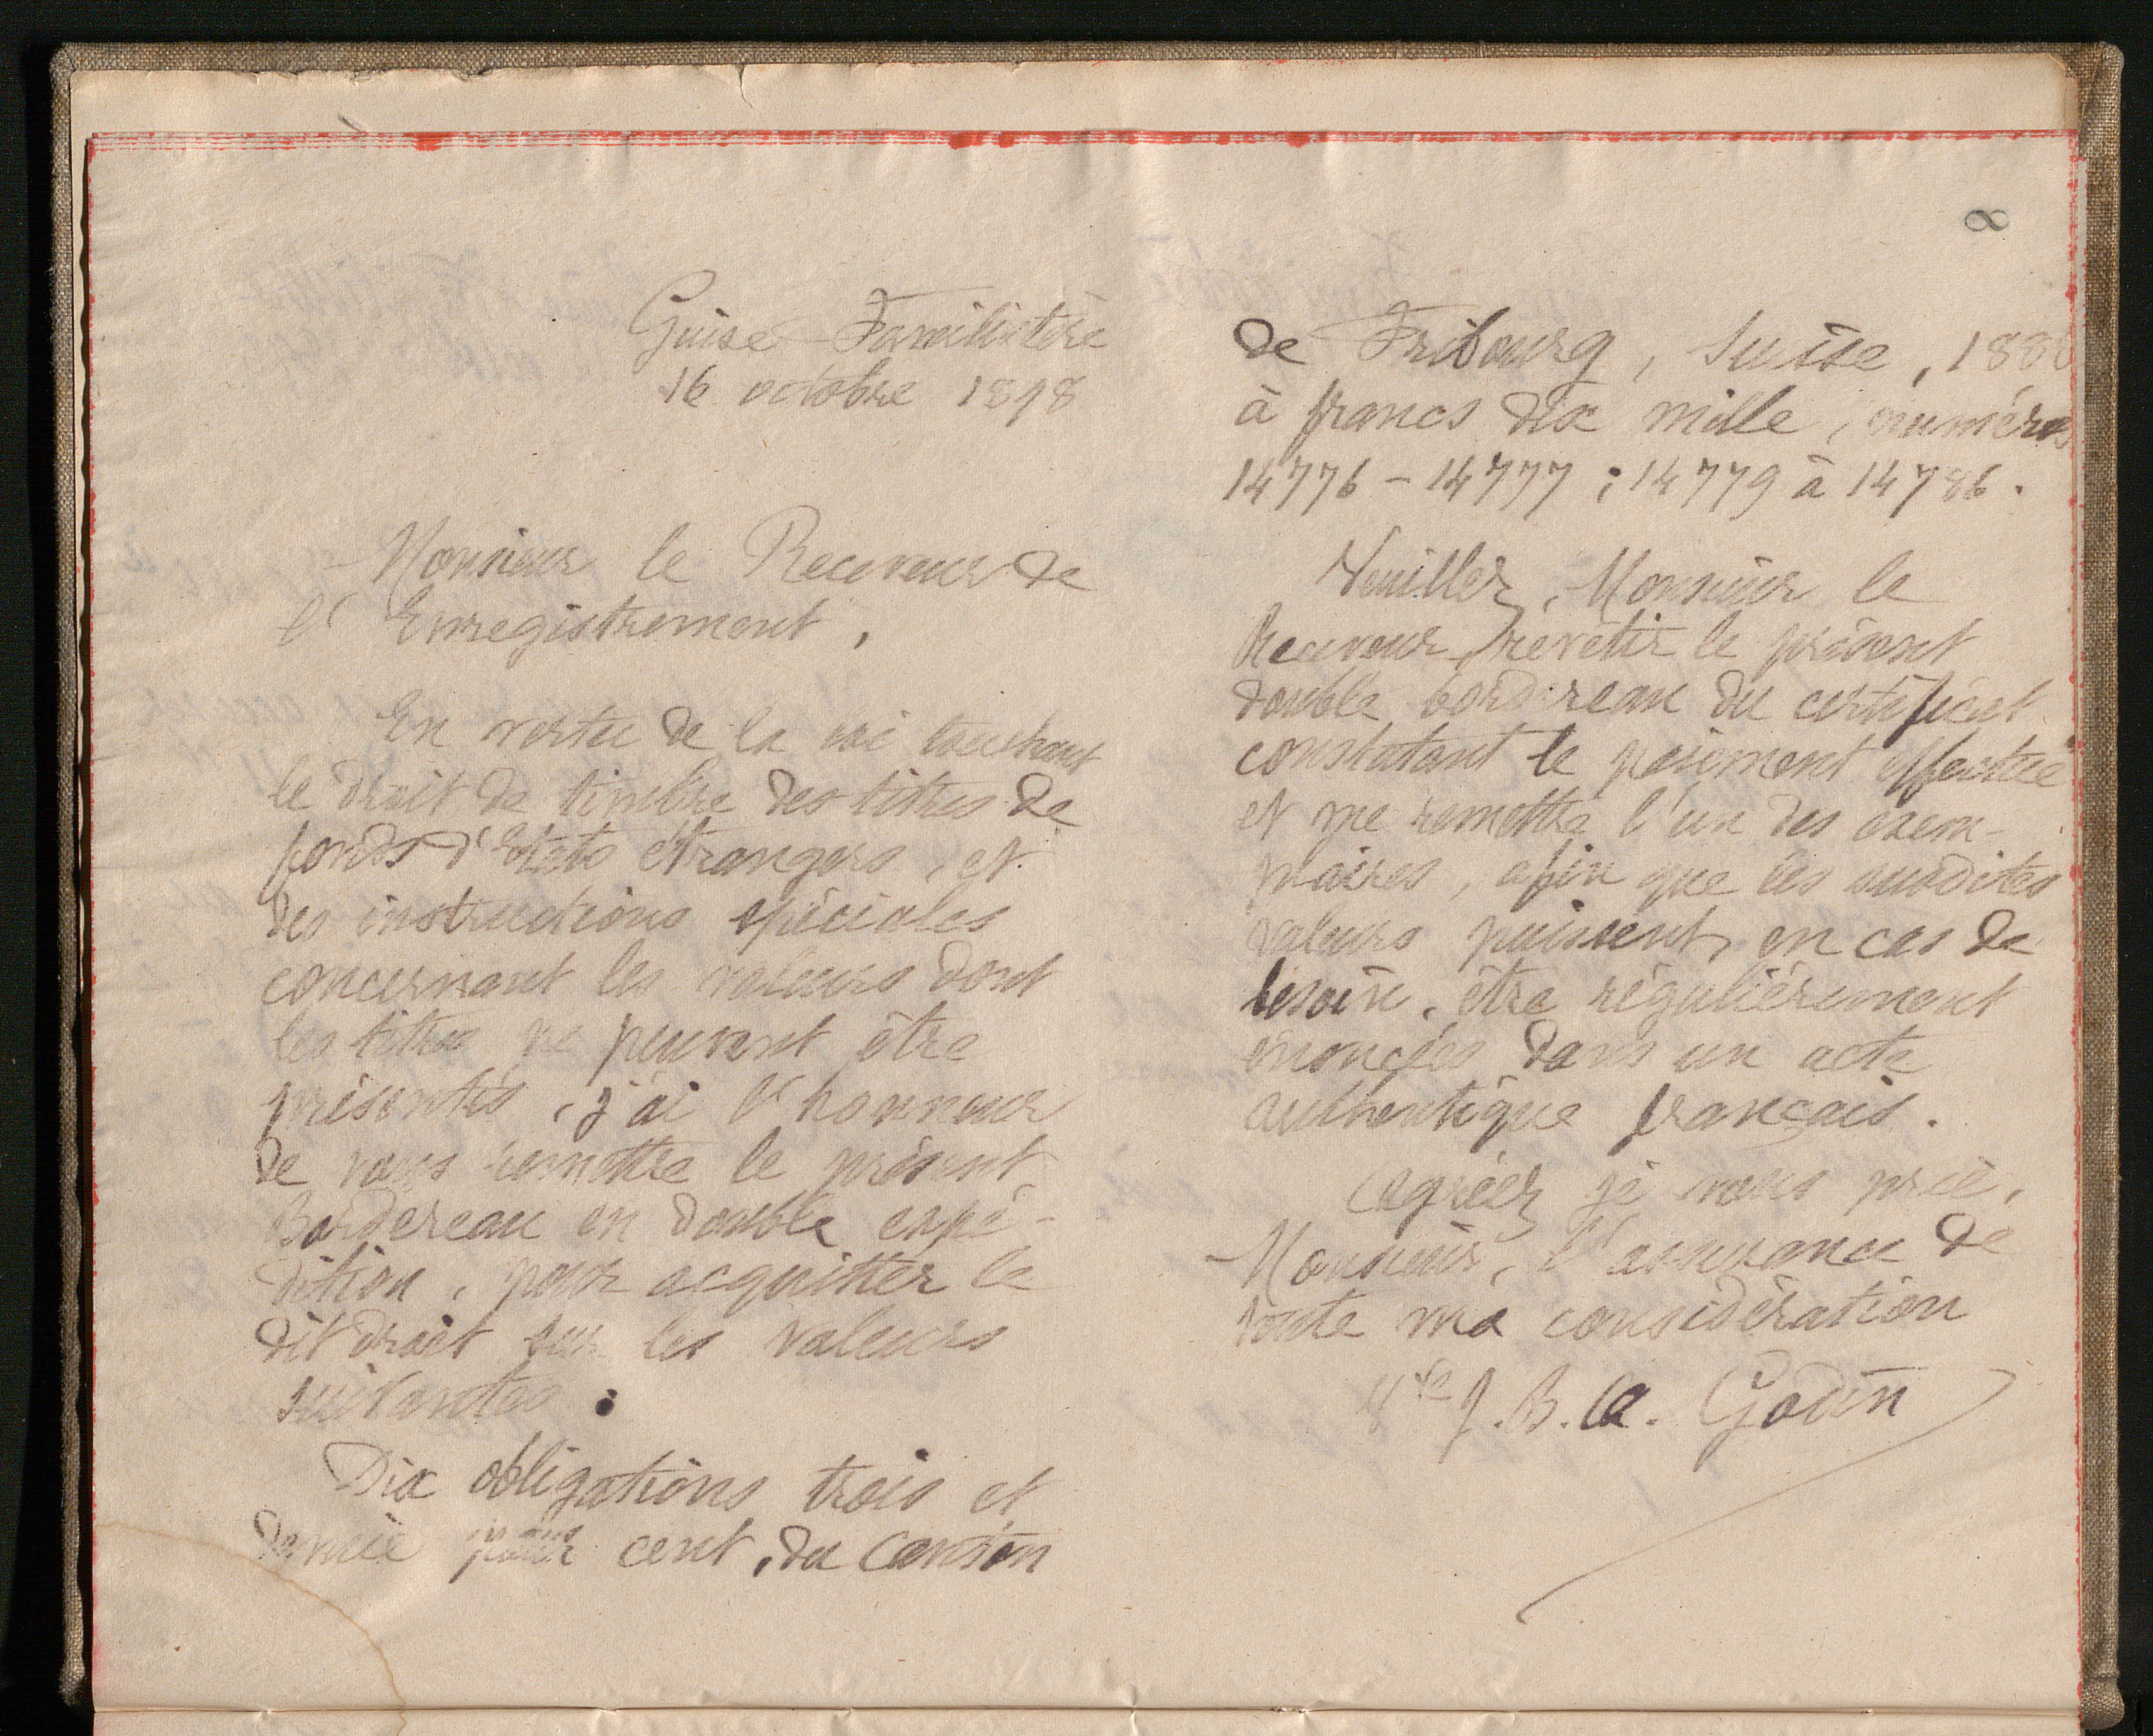 Guise-Familistère
16 octobre 1898
Monsieur le Receveur de
l'Enregistrement,
En vertu de la loi touchant
le droit de timbre des titres de
fonds d'Etats étrangers, et
des instructions spéciales
concernant les valeurs dont
les titres ne peuvent être
présentés, j'ai l'honneur
de vous remettre le présent
Bordereau en double expé-
dition, pour acquitter le
dit droit sur les valeurs
suivantes :
Dix obligations trois et
demie pour cent, du Canton
8
de Fribourg, Suisse,
à francs dix mille, numéros
14776 - 14777 ; 14779 à 14786.
Veuillez, Monsieur le
Receveur, revêtir le présent
double bordereau du certificat
constatant le paiement effectué
et me remettre l'un des exem-
plaires, afin que les susdites
valeurs puissent, en cas de
besoin, être régulièrement
énoncées dans un acte
authentique français.
Agréez je vous prie,
Monsieur, l'assurance de
toute ma considération
Vve J. B. A. Godin